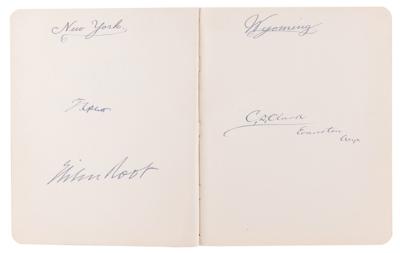 New York.
Elihu Root
Wyoming
C.D. Clark
Evanston
Wyo